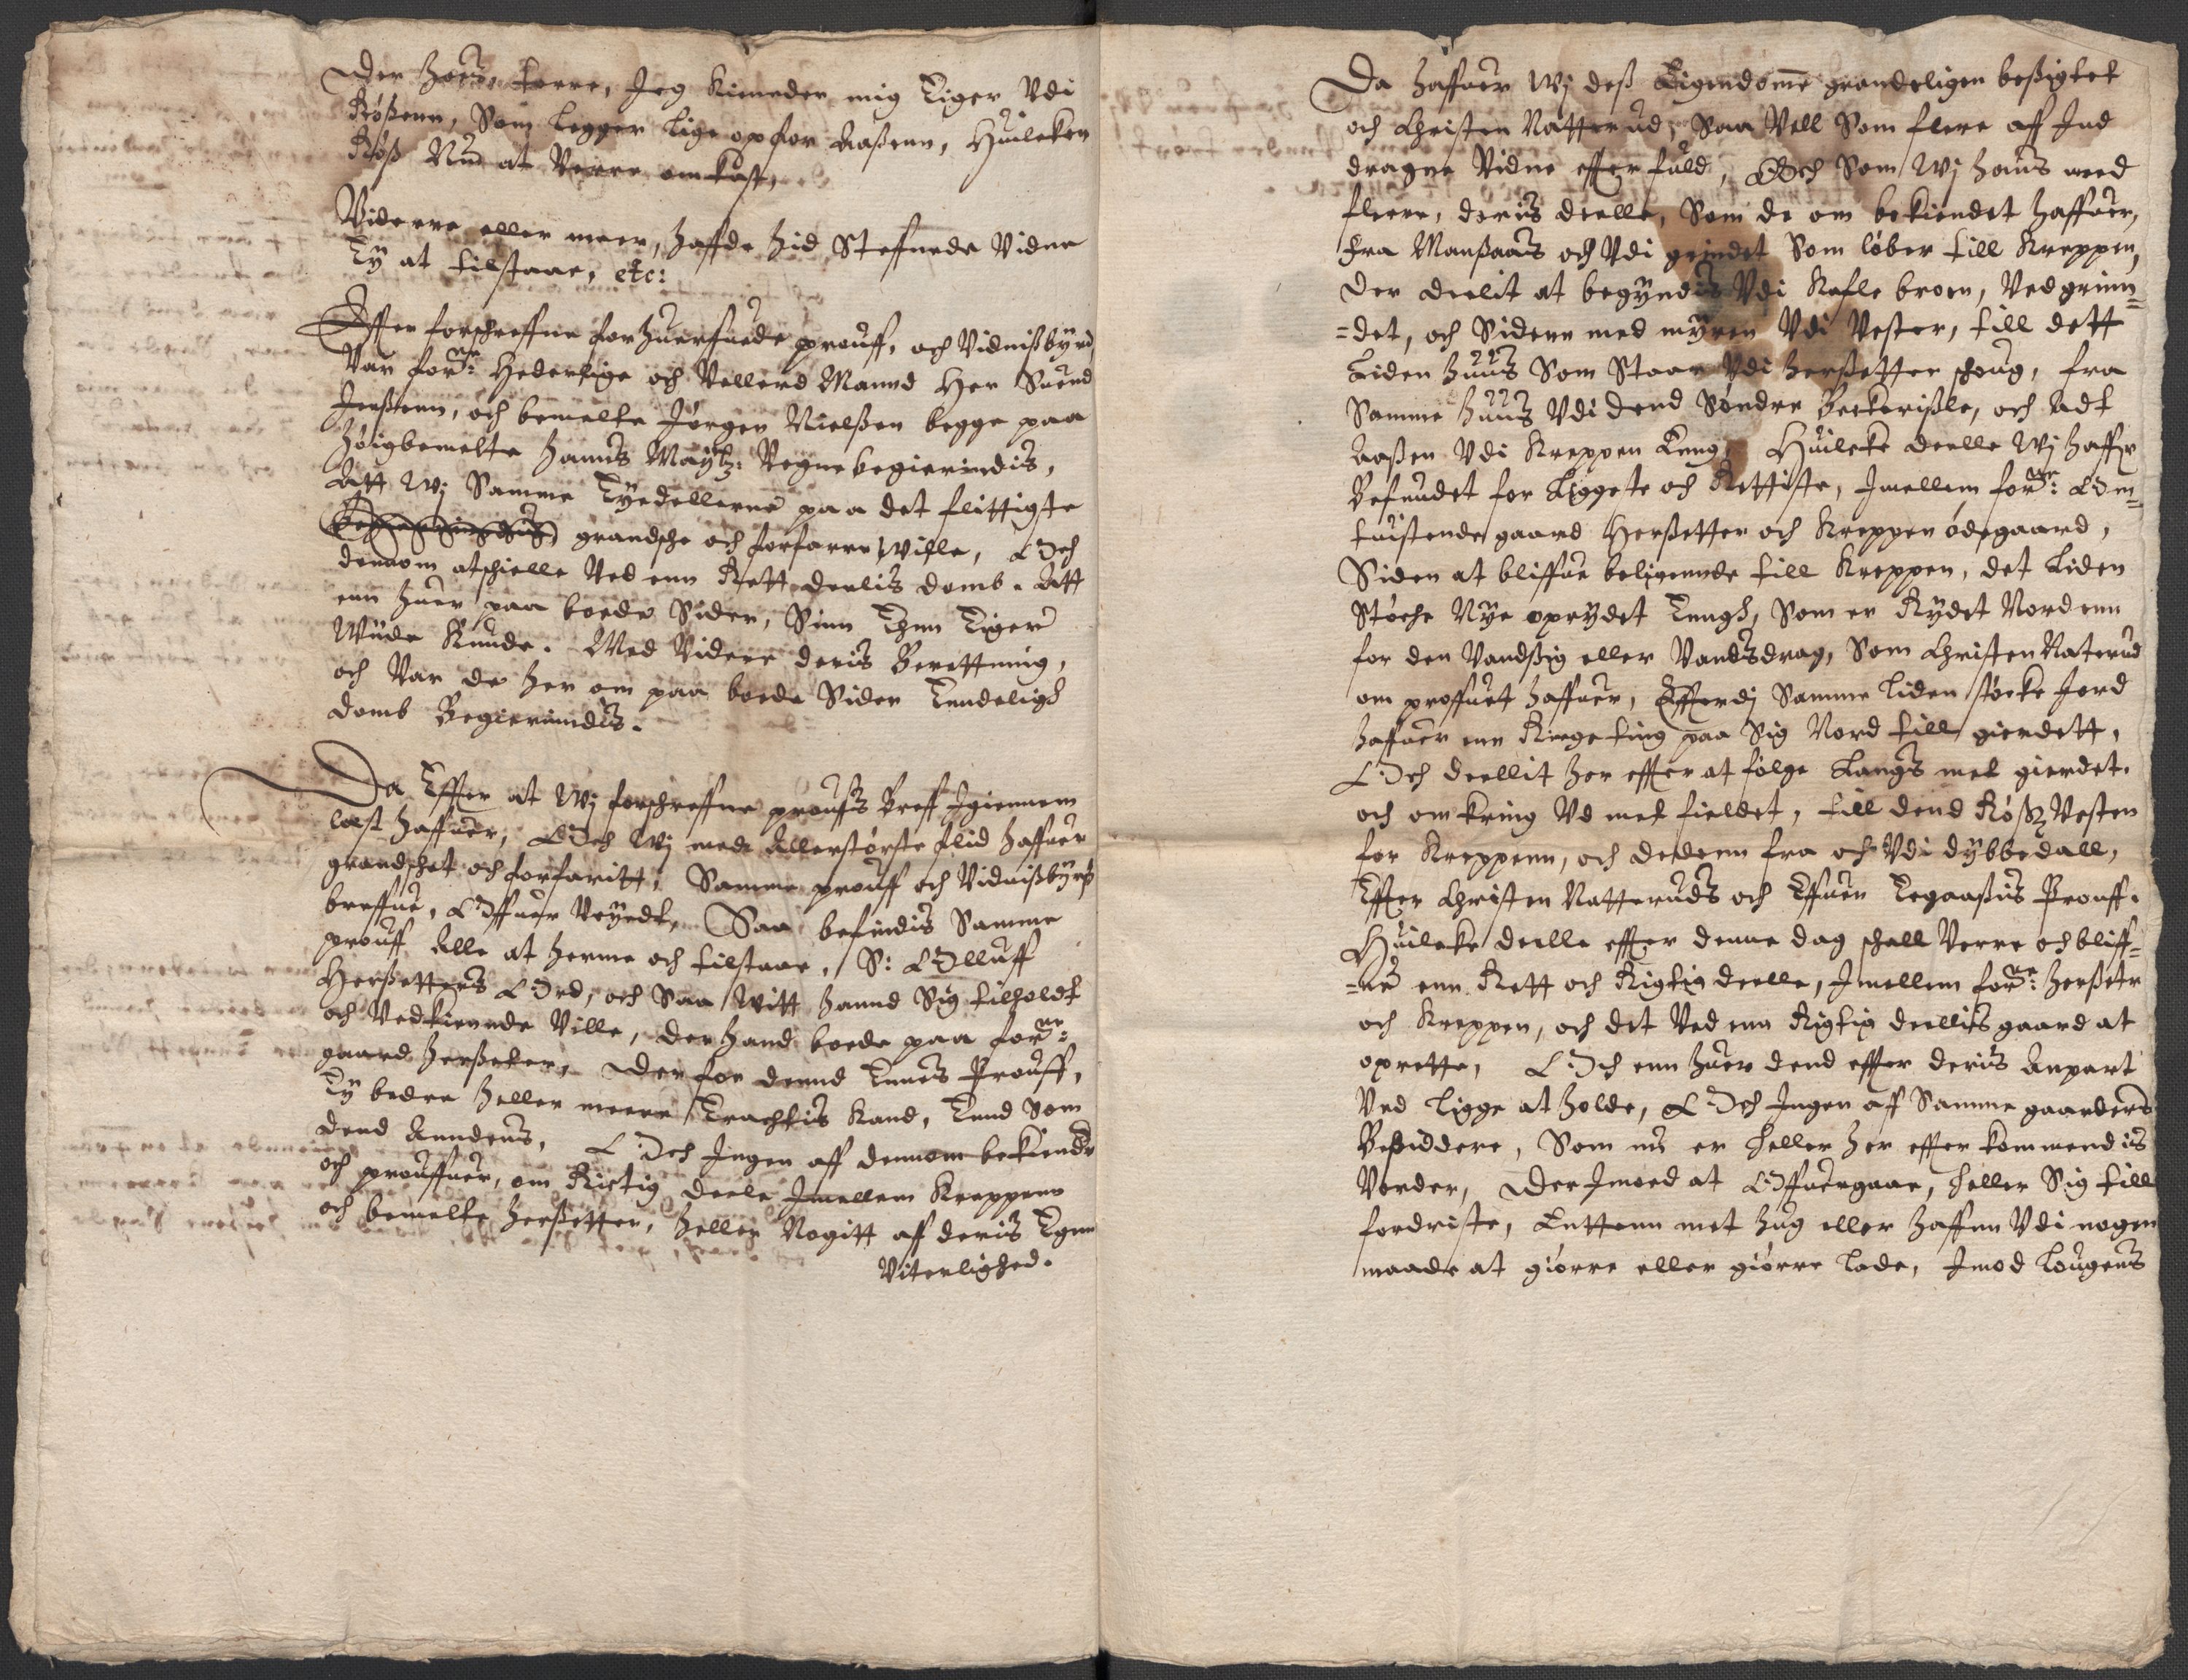 der hous, terre, Jeg kiender mig Eiger Vdi
Rößenn, Som legger lige op for Aaßenn, Huileken
Röß Nu at Verre omkast,
Viderre eller meer, haffde hid Steffnede Vidne
Ey at tilstaae, etc:
Effter forschreffne forhuerfuede prouff, och Vidnißbyrd
Var forne: Hederlige och Vellerd Mannd Her Suend
Jenßenn, och bemelte Jørgen Nielßen begge paa
høigbemelte hanns Maÿtz: Vegne begierindis,
Att Wj Samme Eÿedellerne paa det flittigste
grandsche och forfarre Wille, Och
dennom atschielle Ved enn Rett deelis domb. Att
enn huer paa boede Sider, Sinn Egnn Eiger
Wiide kunde. Med Videre deris Berettning,
och Var de her om paa boede Sider Endeligh
domb Begierindis.
Da Effter at Wj forschreffne prouffs breff Igiennem
læst haffuer, Och Wj med Allerstørste flid haffuer
grandschet och forfaritt, Samme prouff och Vidnißbyrß
breffue, Offuer Veÿedt, Saa befindis Samme
prouff Alle at herme och tilstaae, S: Olluff
Herßetters Ord, och Saa Witt hannd Sig tilholdt
och Vedkiennde Ville, der hand boede paa forne:
gaard herßeter, der for dennd Ennes Prouff,
Ey bedre heller meere Eracktis kand, End Som
dend Anndens, Och Ingen aff dennom bekiender
och prouffuer, om Rictig deele Imellem kreppenn
och bemelte herßetter, heller Nogitt aff deris Egnn
Viterlighed.
Da haffuer Wj deß Eigendomme grandeligen beßigtet
och Christen Natterud, Saa Vell Som flere aff Ind
dragne Vidne effter fuld, Och Som Wj hanns med
fleere, deris deelle, Som de om bekiendet haffuer,
fra Manßaas och Vdi grindet Som løber till kreppen,
der deelit at begÿndis Vdi kafle broen, Ved grinn=
=det, och Sidenn med mÿren Vdi Vester, till dett
Liden huus Som Staar Vdi herßetter schoug, fra
Samme huus Vdi dend Søndre Beckerißle, och Adt
Aaßen Vdi kreppen Eeng, Huilcke deelle Wj haffr
Befundet for Liggeste och Rettiste, Imellem forne: Om=
tuistende gaard Herßetter och kreppen ødegaard,
Siden at bliffue beligennde till kreppen, det Liden
Støche Nÿe oprÿdet Eengh, Som er Rÿdet Nordenn
for den Vandßig eller Vandsdrag, Som Christen Naterud
om proffuet haffuer, Effterdj Samme liden støcke Jord
haffuer enn Ringe ting paa Sig Nord till gierdett,
Och deellit her effter at følge Langs met gierdet.
och omkring Vd met fieldet, till dend Röß Vesten
for kreppenn, och dedenn fra och Vdi dÿbbedall,
Effter Christen Natteruds och Effuen Tegaaßis Prouff.
Huilcke deelle effter denne dag schall Verre och bliff=
=ue enn Rett och Rigtig deelle, Imellem forne: herßetr
och kreppen, och det Ved enn Rigtig deellis gaard at
oprette, Och enn huer dend effter deris Anpart
Ved ligge at holde, Och Ingen aff Samme gaarders
Beßiddere, Som nu er heller her effter kommendis
Vorder, der Imoed at Offuergaae, heller Sig till
fordriste, Enttenn met hug eller haffnn Vdi nogen
maade at giørre eller giørre lade, Imod Lougens